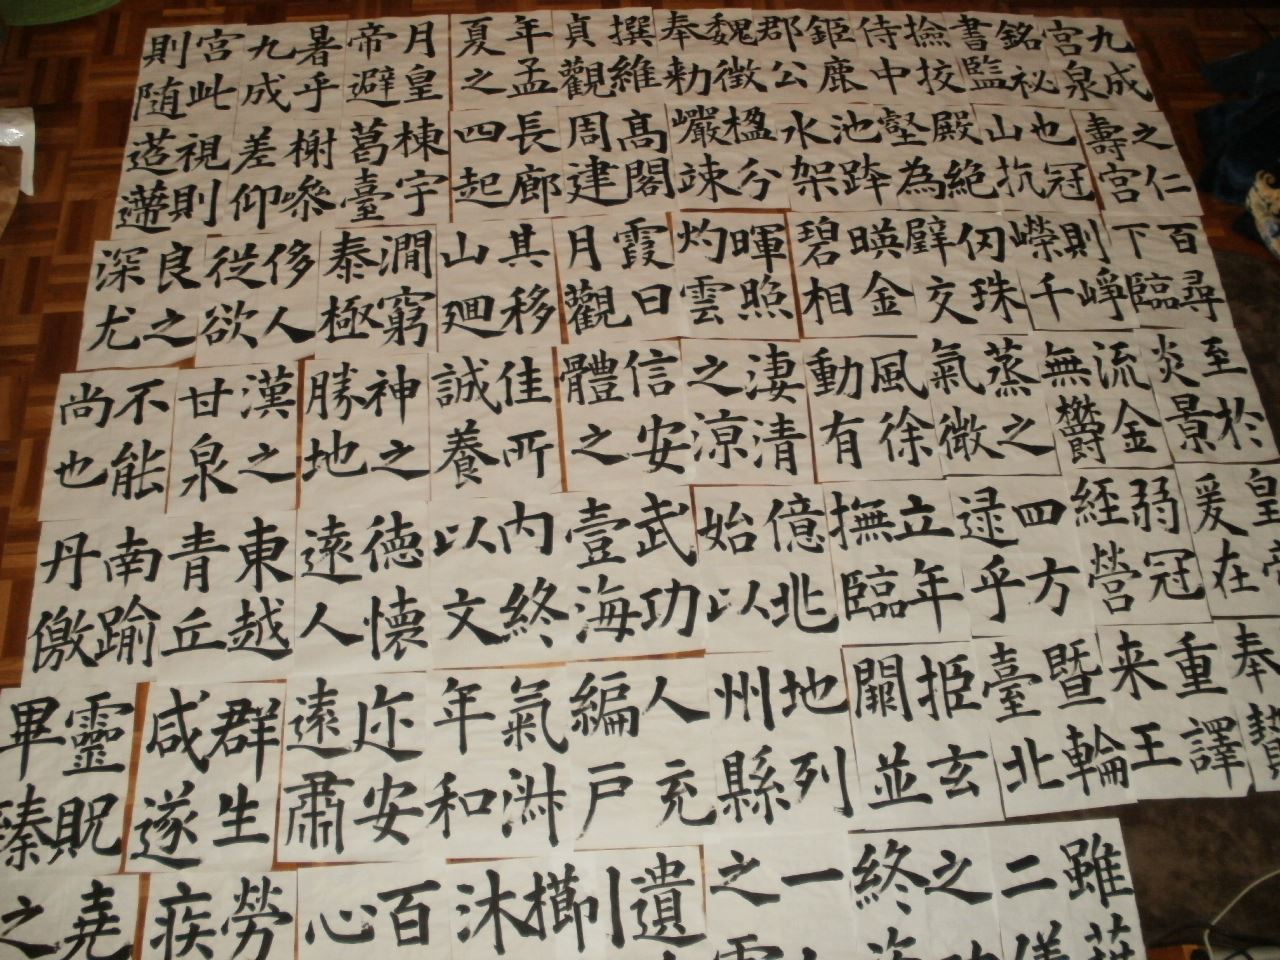 九成宮泉銘祕書監撿挍侍中鉅鹿郡公魏徵奉勅撰維貞觀年孟夏之月皇帝避暑乎九成宮此則随
之仁壽宮也冠山抗殿絕壑為池跨水架楹分巖竦高閣周建長廊四起棟宇葛臺榭參差仰視則迢遰
百尋下臨則崢嶸千仞珠璧交暎金碧相暉照灼雲霞日月觀其移山廻澗窮泰極侈人從欲良之深尤
至於炎景流金無欝蒸之氣微風徐動有淒清之涼信安體之佳所誠養神之勝地漢之甘泉不能尚也
皇帝爰在弱冠經營四方逮乎立年撫臨億兆始以武功壹海內終以文德懷遠人東越青丘南踰丹徼
奉贄重譯来王暨輪臺北拒玄闕並地列州縣人充編戶氣淑年和迩安遠肅群生咸遂靈貺畢臻
雖二儀之終一之遺櫛沐百心勞疾堯之